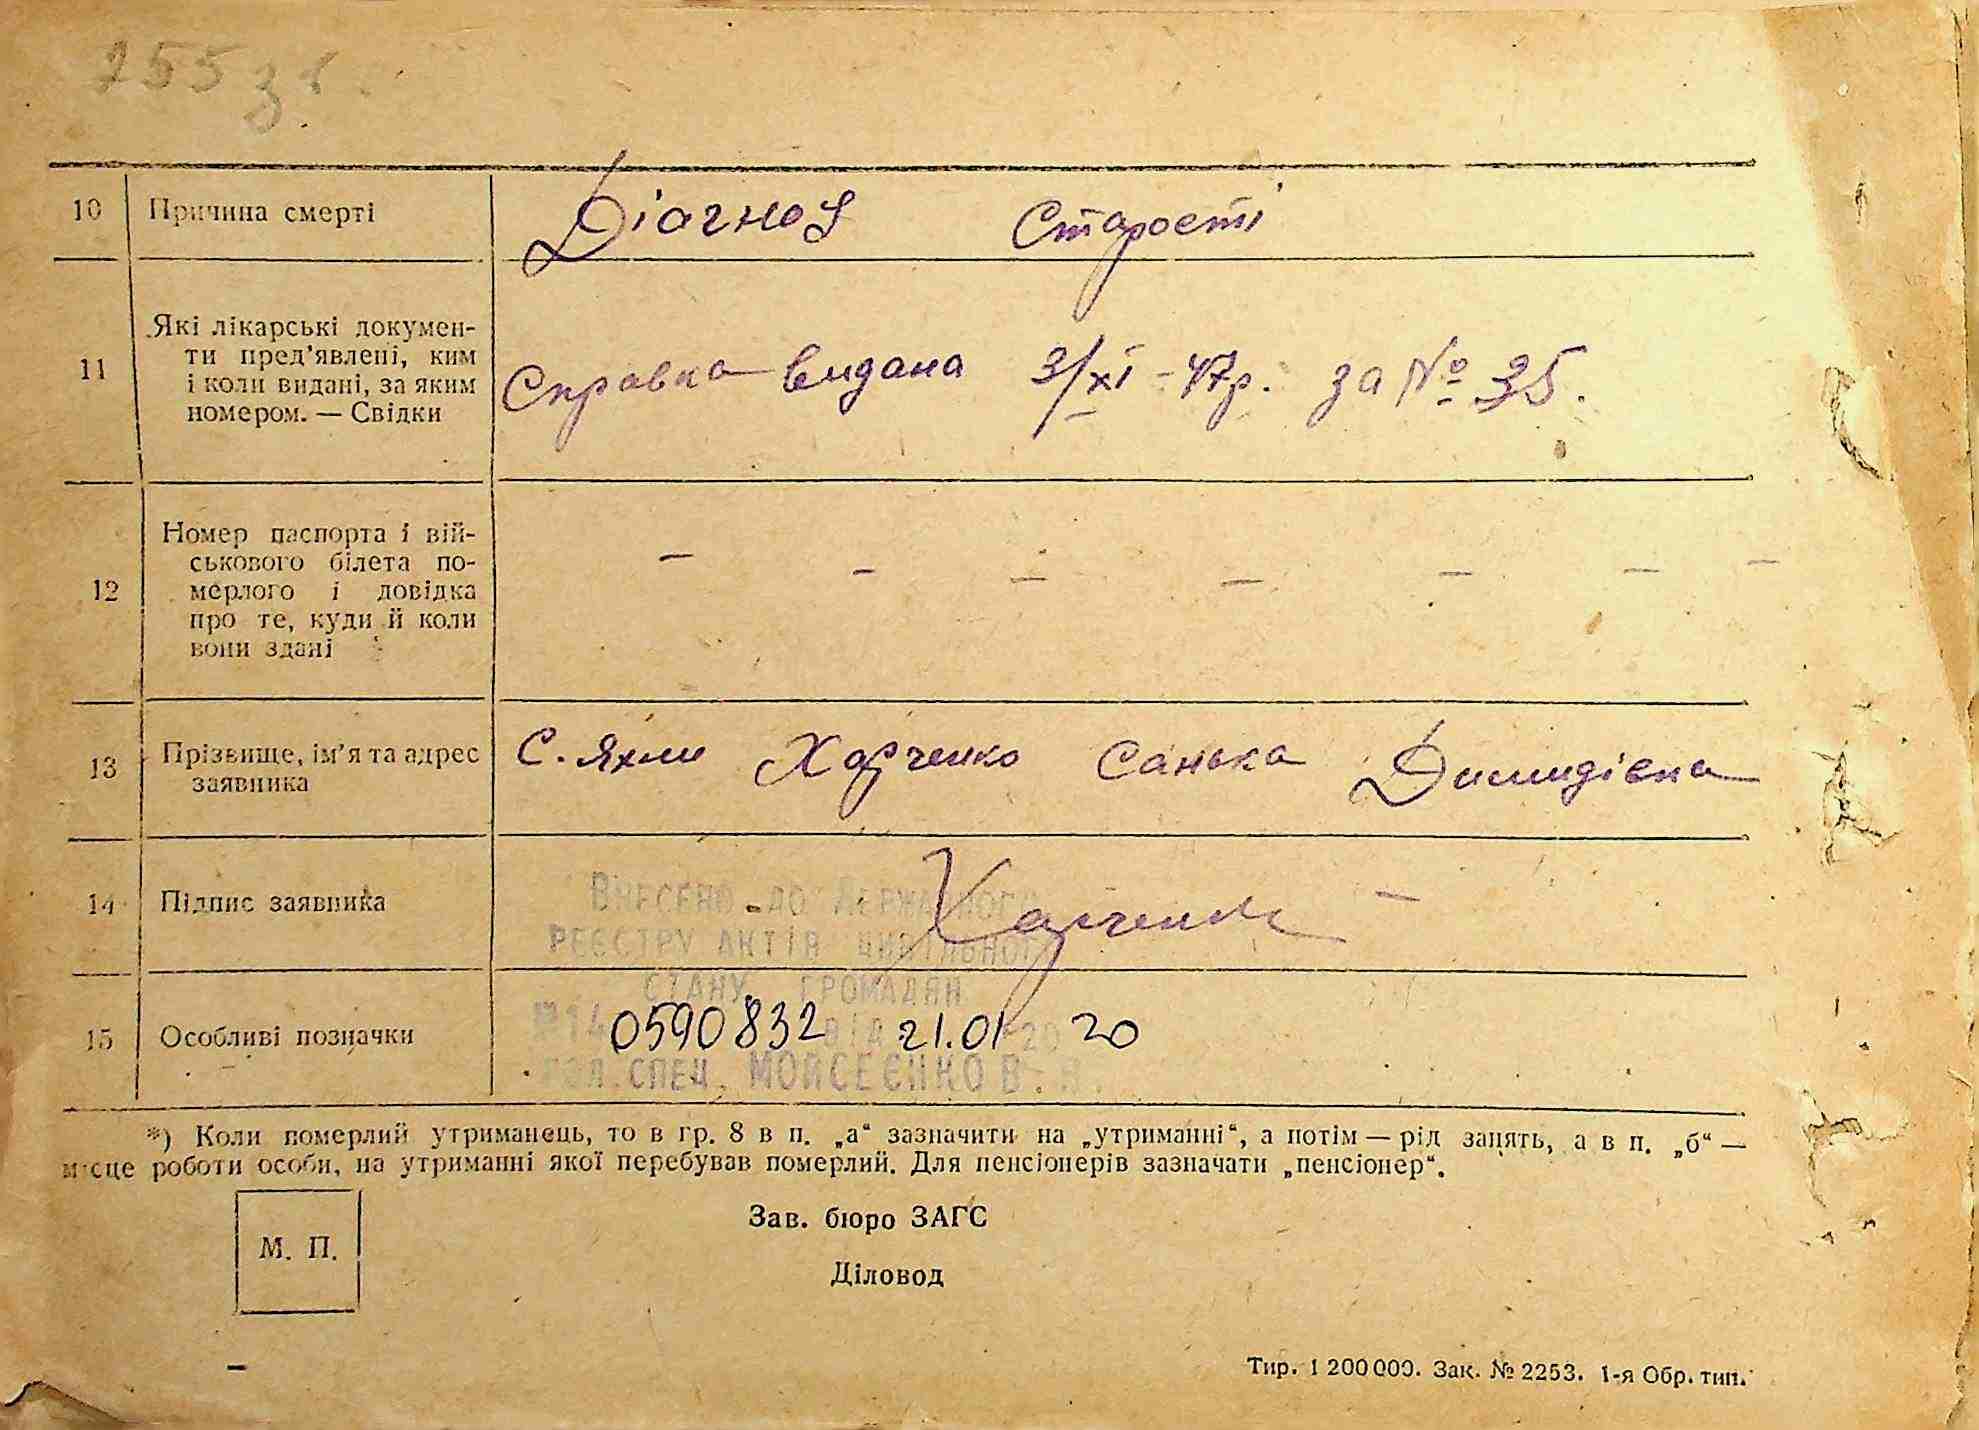 255 зв.
10 Причина смерті Діагноз Старості
11 Які лікарські докумен-
ти пред’явлені, ким
і коли видані, за яким
номером. — Свідки
Справка видана 3/XI - 47р. за № 35.
12 Номер паспорта і вій-
ськового білета по-
мерлого і довідка
про те, куди й коли
вони здані
— — — — — — —
13 Прізвище, ім’я та адрес
заявника
С. Яхли Харченко Санька Димидівна
14 Підпис заявника Харченко —
ВНЕСЕНО ДО ДЕРЖАВНОГО
РЕЄСТРУ АКТІВ ЦИВІЛЬНОГО
СТАНУ ГРОМАДЯН
15 Особливі позначки
№ 14 0590832 ВІД 21.01 20 20
ГОЛ. СПЕЦ. МОЙСЕЄНКО В.
*) Коли померлий утриманець, то в гр. 8 в п. „а“ зазначити на „утриманні“, а потім — рід занять, а в п. „б“ —
місце роботи особи, на утриманні якої перебував померлий. Для пенсіонерів зазначати „пенсіонер“.
М. П.
Зав. бюро ЗАГС
Діловод
Тир. 1 200 000. Зак. № 2253. 1-я Обр. тип.